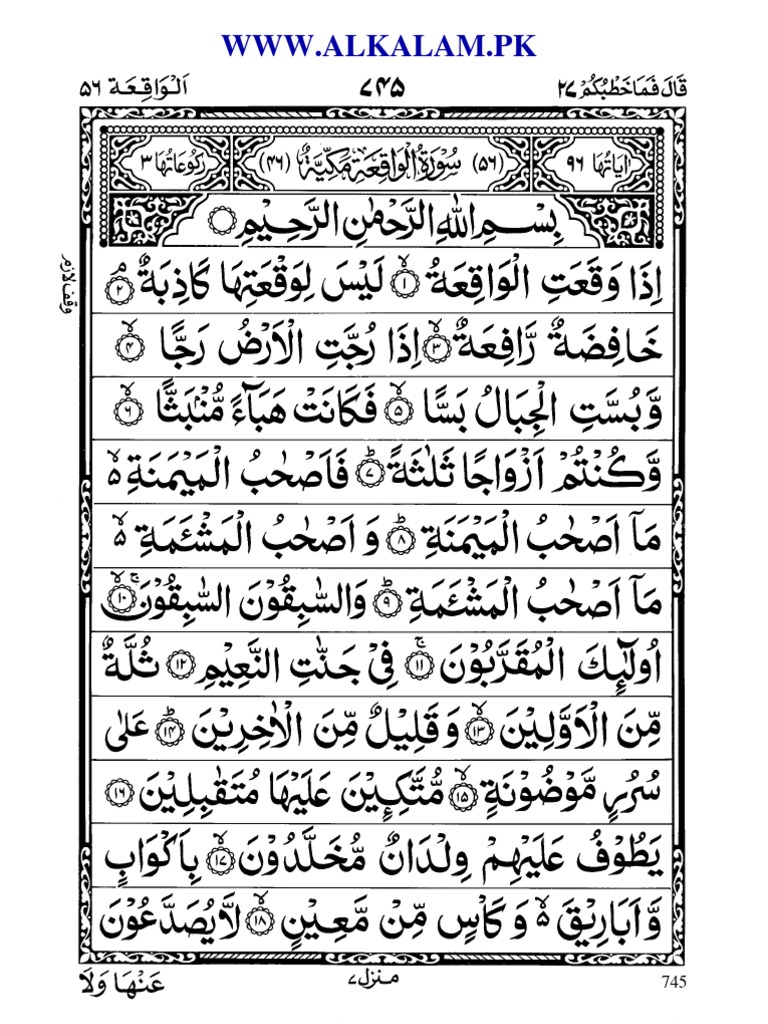 WWW.ALKALAM.PK
قَالَ فَمَا خَطْبُكُمْ ٢٧ ٧٤٥ اَلْوَاقِعَة ٥٦
اٰيَاتُهَا ٩٦ (٥٦) سُوْرَةُ الْوَاقِعَةِ مَكِّيَّةٌ (٤٦) رُكُوْعَاتُهَا ٣
بِسْمِ اللّٰهِ الرَّحْمٰنِ الرَّحِيْمِ
اِذَا وَقَعَتِ الْوَاقِعَةُ ۙ﴿١﴾ لَيْسَ لِوَقْعَتِهَا كَاذِبَةٌ ۘ﴿٢﴾
وقف لازم
خَافِضَةٌ رَّافِعَةٌ ۙ﴿٣﴾ اِذَا رُجَّتِ الْاَرْضُ رَجًّا ۙ﴿٤﴾
وَّبُسَّتِ الْجِبَالُ بَسًّا ۙ﴿٥﴾ فَكَانَتْ هَبَآءً مُّنْۢبَثًّا ۙ﴿٦﴾
وَّكُنْتُمْ اَزْوَاجًا ثَلٰثَةً ؕ﴿٧﴾ فَاَصْحٰبُ الْمَيْمَنَةِ ۙ۬
مَاۤ اَصْحٰبُ الْمَيْمَنَةِ ؕ﴿٨﴾ وَ اَصْحٰبُ الْمَشْـَٔمَةِ ۙ۬
مَاۤ اَصْحٰبُ الْمَشْـَٔمَةِ ؕ﴿٩﴾ وَالسّٰبِقُوْنَ السّٰبِقُوْنَ ۚۙ﴿١٠﴾
اُولٰٓئِكَ الْمُقَرَّبُوْنَ ۚ﴿١١﴾ فِيْ جَنّٰتِ النَّعِيْمِ ﴿١٢﴾ ثُلَّةٌ
مِّنَ الْاَوَّلِيْنَ ۙ﴿١٣﴾ وَقَلِيْلٌ مِّنَ الْاٰخِرِيْنَ ؕ﴿١٤﴾ عَلٰى
سُرُرٍ مَّوْضُوْنَةٍ ۙ﴿١٥﴾ مُّتَّكِـِٕيْنَ عَلَيْهَا مُتَقٰبِلِيْنَ ﴿١٦﴾
يَطُوْفُ عَلَيْهِمْ وِلْدَانٌ مُّخَلَّدُوْنَ ۙ﴿١٧﴾ بِاَكْوَابٍ
وَّاَبَارِيْقَ ۙ۬ وَكَاْسٍ مِّنْ مَّعِيْنٍ ۙ﴿١٨﴾ لَّا يُصَدَّعُوْنَ
عَنْهَا وَلَا منزل ٧ 745